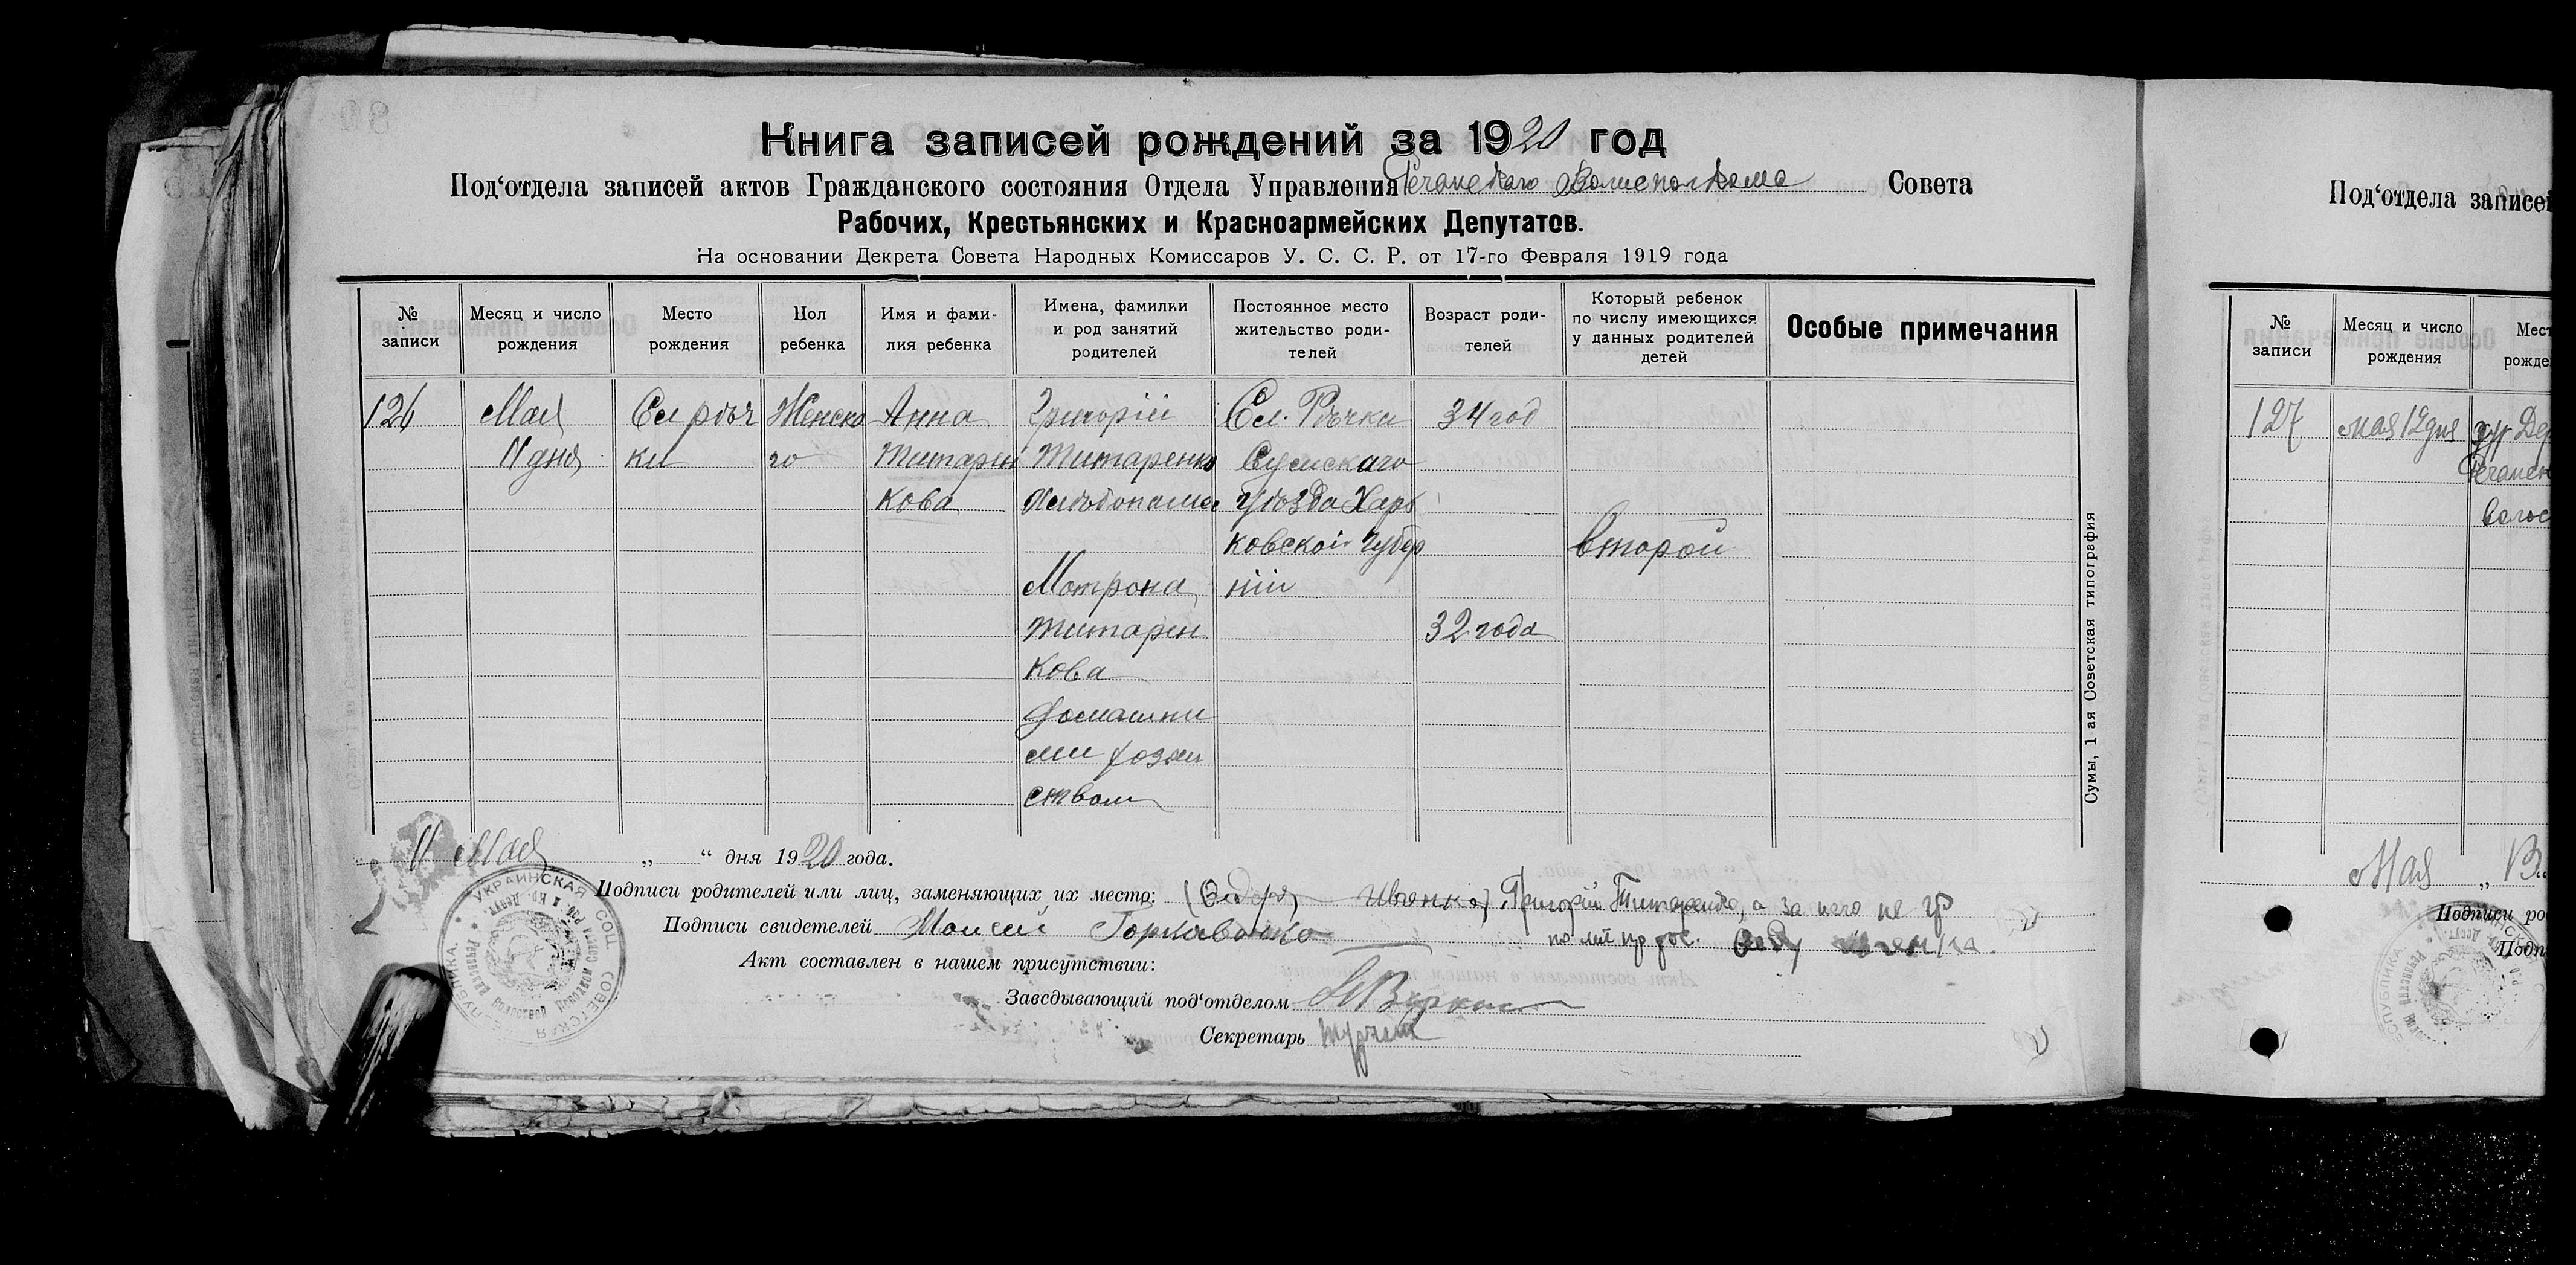 Книга записей рождений за 1920 год
Под‘отдела записей актов Гражданского состояния Отдела Управления Речанскаго Волисполкома Совета
Рабочих, Крестьянских и Красноармейских Депутатов.
На основании Декрета Совета Народных Комиссаров У. С. С. Р. от 17-го Февраля 1919 года
№ записи
Месяц и число рождения
Место рождения
Пол ребенка
Имя и фами-
лия ребенка
Имена, фамилии
и род занятий
родителей
Постоянное место
жительство роди-
телей
Возраст роди-
телей
Который ребенок
по числу имеющихся
у данных родителей
детей
Особые примечания
126
Мая
11 дня
Сл рѣч
ки
Женско
го
Анна
Титарен
кова
Григорій
Титаренко
Хлѣбопашец
Мотрона
Титарен
кова
домашни
ми хозяй
ством
Сл. Рѣчки
Сумскаго
уѣзда Харь
ковской губер
нiи
34 год
32 года
второй
Сумы, 1 ая Советская типография
11 Мая „ “ дня 1920 года.
Подписи родителей или лиц, заменяющих их место: Григорій Титаренко, а за него не гр
Подписи свидетелей Моисей
Акт составлен в нашем присутствии:
Заведывающий под‘отделом
Секретарь
УКРАИНСКАЯ СОЦ. СОВЕТСКАЯ РЕСПУБЛИКА
Под‘отдела записей
№ записи
Месяц и число рождения
Мест
рожде
127
мая 12 дня
Мая „ В
Подписи ро
Подп